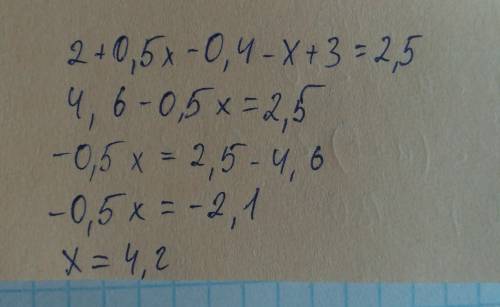 2+0,5x-0,4-x+3=2,5
4,6-0,5x=2,5
-0,5x=2,5-4,6
-0,5x=-2,1
x=4,2